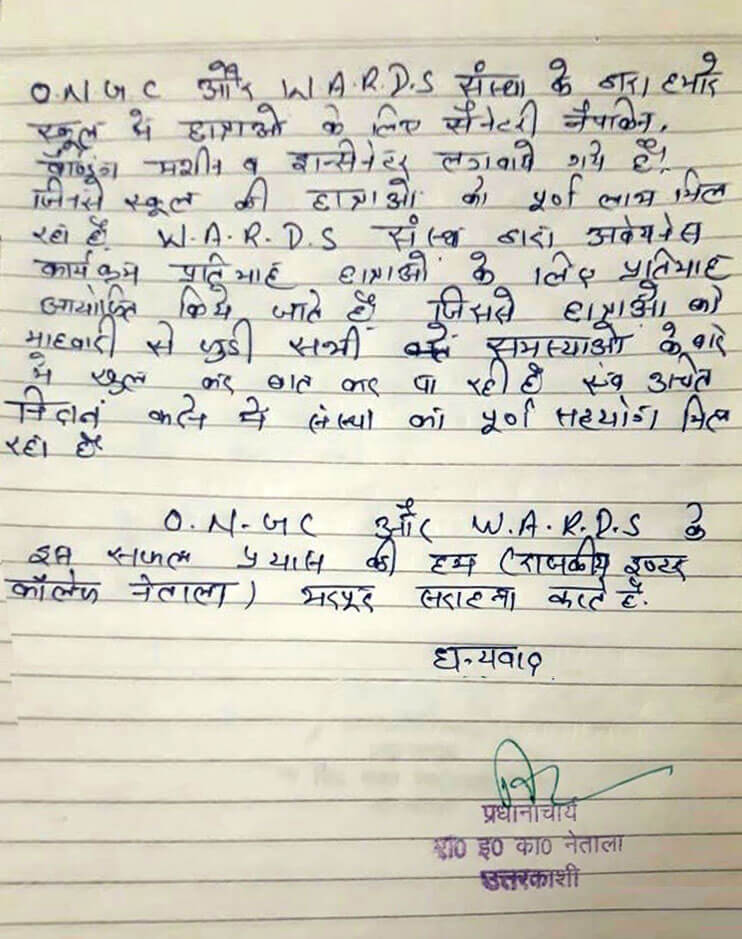 O.N.G.C और W.A.R.D.S संस्था के द्वारा हमारे
स्कूल मे छात्राओ के लिए सैनेटरी नैपकिन,
वैण्डिंग मशीन व इन्सीनेटर लगवाये गये है।
जिनसे स्कूल की छात्राओ को पूर्ण लाभ मिल
रहा है। W.A.R.D.S संस्था द्वारा अवेयनेस
कार्यक्रम प्रतिमाह छात्राओं के लिए प्रतिमाह
आयोजित किये जाते है। जिससे छात्राओ को
माहवारी से जुडी सभी समस्याओ के बारे
मे खुल कर बात कर पा रही है एंव उचित
निदान करने मे संस्था का पूर्ण सहयोग मिल
रहा है
O.N.G.C और W.A.R.D.S के
इस सफल प्रयास की हम (राजकीय इण्टर
कॉलेज नेताला) भरपूर सराहना करते है.
धन्यवाद
प्रधानाचार्य
रा० इ० का० नेताला
उत्तरकाशी